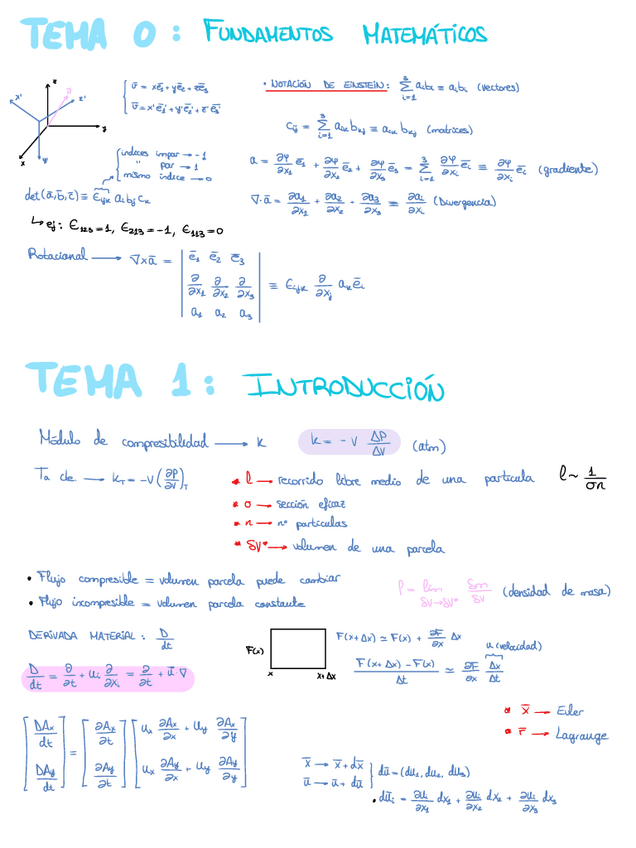 TEMA 0: FUNDAMENTOS MATEMÁTICOS
z
x' z'
y
x
y'
v̄ = xē₁ + yē₂ + zē₃
v̄ = x'ē₁' + y'ē₂' + z'ē₃'
• NOTACIÓN DE EINSTEIN: ∑_{i=1}^{3} aᵢbᵢ ≡ aᵢbᵢ (vectores)
c_{ij} = ∑_{k=1}^{3} a_{ik} b_{kj} ≡ a_{ik} b_{kj} (matrices)
índices impar → -1
" par → 1
mismo índice → 0
a = ∂φ/∂x₁ ē₁ + ∂φ/∂x₂ ē₂ + ∂φ/∂x₃ ē₃ = ∑_{i=1}^{3} ∂φ/∂xᵢ ēᵢ ≡ ∂φ/∂xᵢ ēᵢ (gradiente)
det(ā, b̄, c̄) ≡ ε_{ijk} aᵢ bⱼ cₖ
∇·ā = ∂a₁/∂x₁ + ∂a₂/∂x₂ + ∂a₃/∂x₃ ≡ ∂aᵢ/∂xᵢ (Divergencia)
↳ ej: ε₁₂₃ = 1, ε₂₁₃ = -1, ε₁₁₃ = 0
Rotacional → ∇×ā = | ē₁ ē₂ ē₃ |
| ∂/∂x₁ ∂/∂x₂ ∂/∂x₃ | ≡ ε_{ijk} ∂/∂xⱼ aₖ ēᵢ
| a₁ a₂ a₃ |
TEMA 1: INTRODUCCIÓN
Módulo de compresibilidad → K k = -V ΔP/ΔV (atm)
Tª cte → k_T = -V (∂P/∂V)_T
• l → recorrido libre medio de una partícula l ~ 1/σn
• σ → sección eficaz
• n → nº partículas
• δV* → volumen de una parcela
• Flujo compresible = volumen parcela puede cambiar
• Flujo incompresible = volumen parcela constante
ρ = lím_{δV→δV*} δm/δV (densidad de masa)
DERIVADA MATERIAL: D/dt
F(x)
x x+Δx
F(x+Δx) ≃ F(x) + ∂F/∂x Δx
u (velocidad)
F(x+Δx) - F(x) / Δt ≃ ∂F/∂x Δx/Δt
D/dt = ∂/∂t + uᵢ ∂/∂xᵢ = ∂/∂t + ū ∇
• x̄ → Euler
• r̄ → Lagrange
[DAₓ/dt] = [∂Aₓ/∂t] [uₓ ∂Aₓ/∂x + u_y ∂Aₓ/∂y]
[DA_y/dt] [∂A_y/∂t] [uₓ ∂A_y/∂x + u_y ∂A_y/∂y]
x̄ → x̄ + dx̄
ū → ū + dū
dū = (du₁, du₂, du₃)
• dūᵢ = ∂uᵢ/∂x₁ dx₁ + ∂uᵢ/∂x₂ dx₂ + ∂uᵢ/∂x₃ dx₃